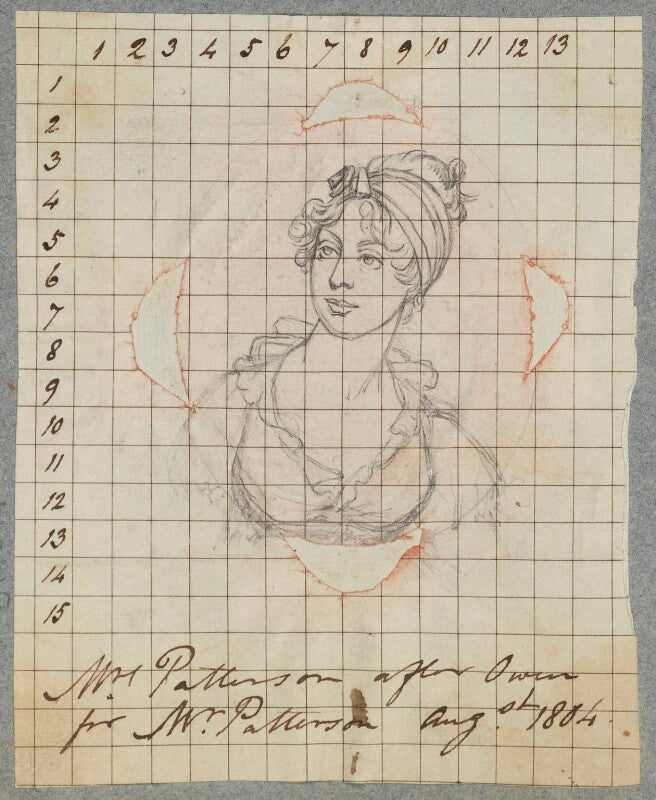 1 2 3 4 5 6 7 8 9 10 11 12 13
1
2
3
4
5
6
7
8
9
10
11
12
13
14
15
Mrs Patterson after Owen
for Mr. Patterson Aug.st 1804.